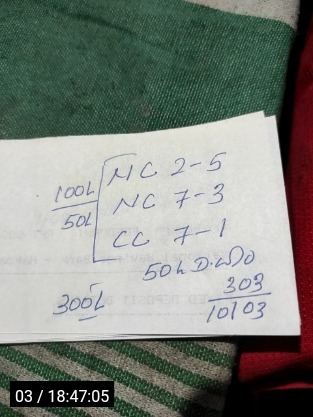 NC 2-5
100L NC 7-3
50L
CC 7-1
300L
303
10103
03 / 18:47:05